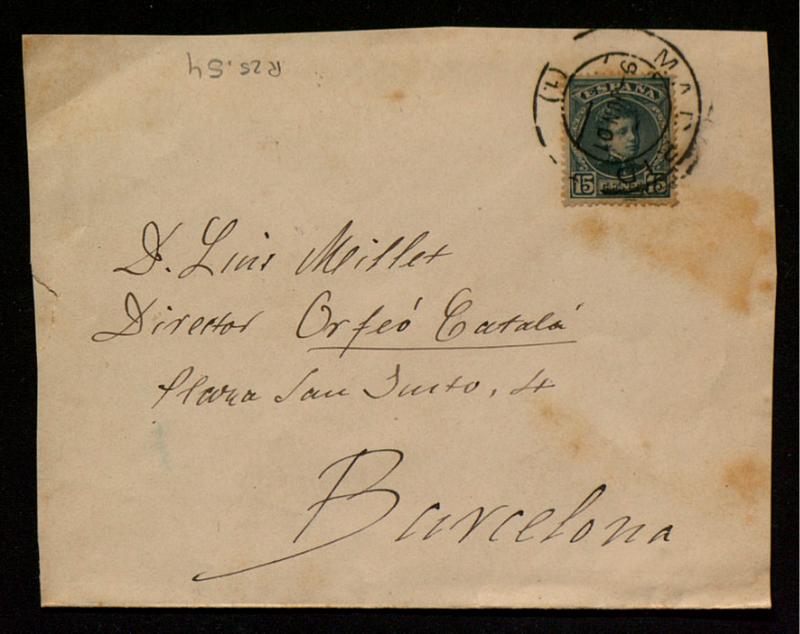 R 25.54
MADRID
(1.)
ESPAÑA
15 CENTS 15
D. Luis Millet
Director Orfeó Catalá
Plaza San Justo, 4
Barcelona